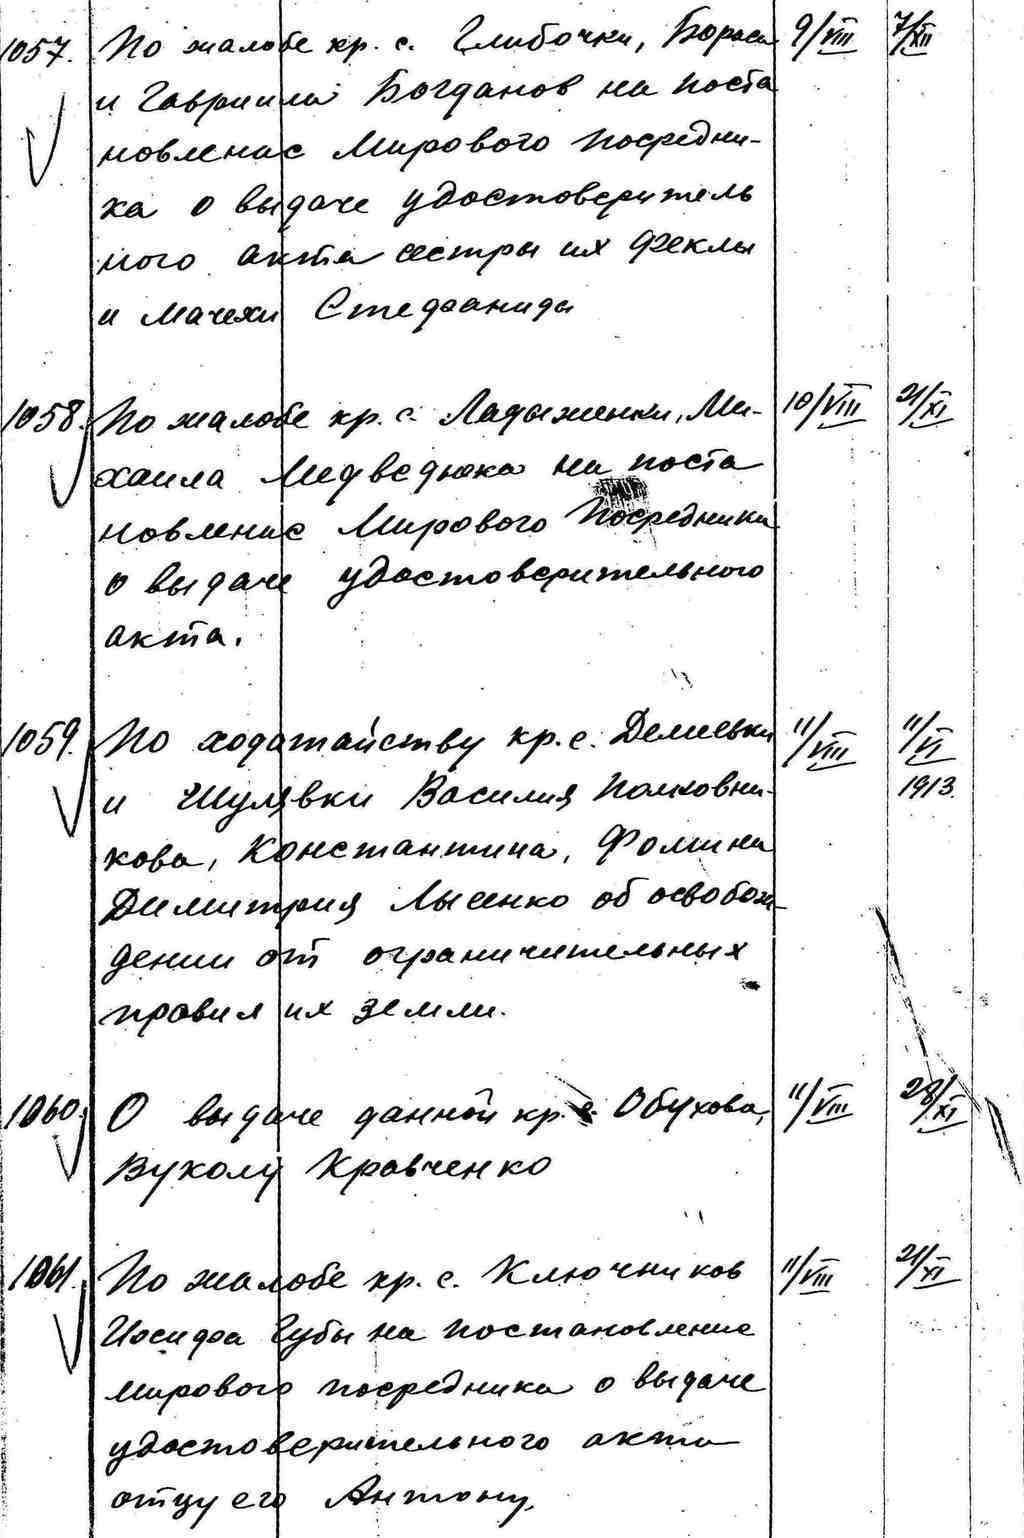 1057. По жалобе кр. с. Глибочки, Бориса 9/VIII 7/XII
и Гавриила Богданов на поста
новление Мирового посредни-
ка о выдаче удостоверитель
ного акта сестры их Феклы
и мачехи Стефаниды
1058. По жалобе кр. с. Ладыженки, Ми- 10/VIII 21/XI
хаила Медведюка на поста
новление Мирового Посредника
о выдаче удостоверительного
акта.
1059. По ходатайству кр. с. Демиевки 11/VIII 11/VI
и Шулявки Василия Полковни- 1913.
кова, Константина, Фомина
Димитрия Лысенко об освобож-
дении от ограничительных
правил их земли.
1060. О выдаче данной кр. с. Обухова, 11/VIII 28/XI
Вуколу Кравченко
1061. По жалобе кр. с. Ключников 11/VIII 21/XI
Иосифа Губы на постановление
мирового посредника о выдаче
удостоверительного акта
отцу его Антону.